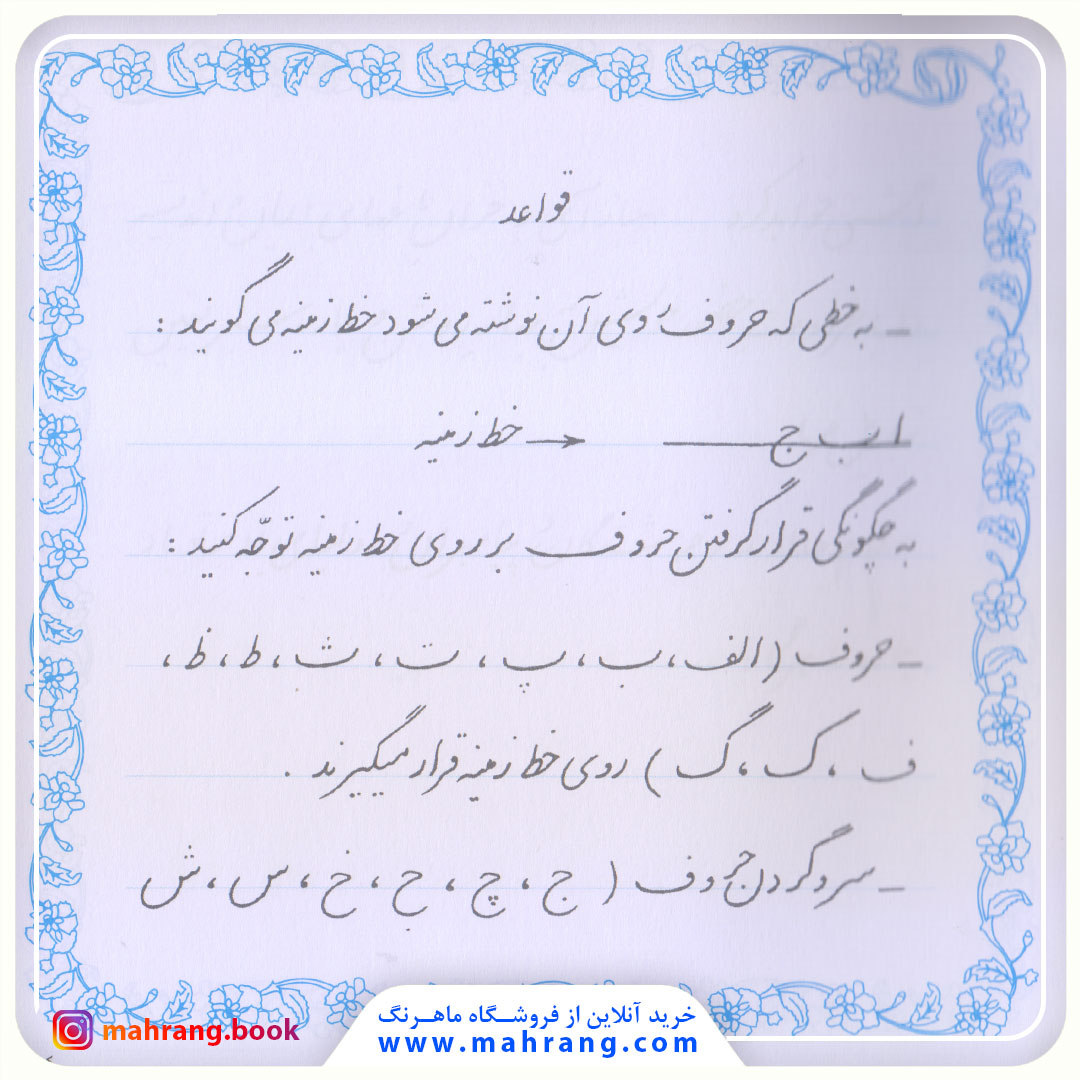 قواعد
ـ به خطی که حروف روی آن نوشته می شود خط زمینه می گویند :
ا ب ج ← خط زمینه
به چگونگی قرار گرفتن حروف بر روی خط زمینه توجّه کنید :
ـ حروف ( الف ، ب ، پ ، ت ، ث ، ط ، ظ ،
ف ، ک ، گ ) روی خط زمینه قرار میگیرند .
ـ سر و گردن حروف ( ج ، چ ، ح ، خ ، س ، ش
mahrang.book
خرید آنلاین از فروشگاه ماهرنگ
www.mahrang.com